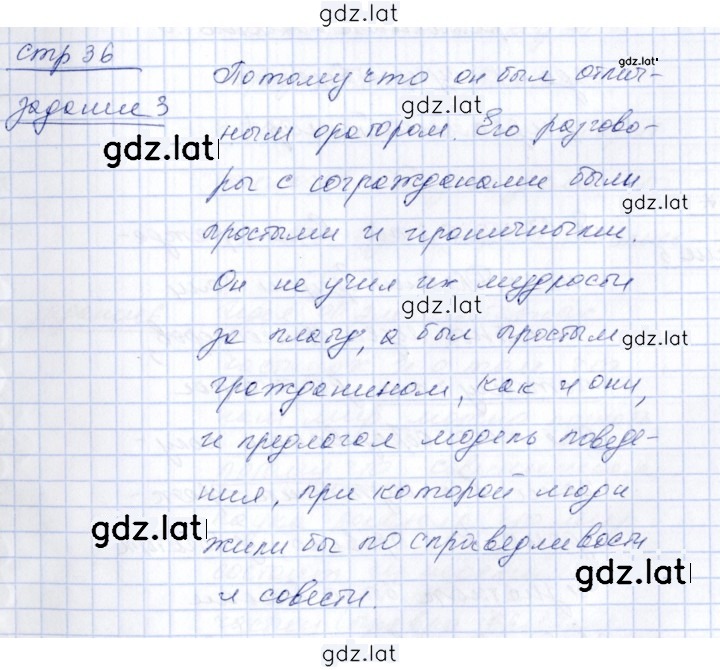 gdz.lat
стр 36
Потому что он был отлич-
gdz.lat
задание 3
gdz.lat
ным оратором. Его разгово-
gdz.lat
ры с согражданами были
gdz.lat
простыми и ироничными.
Он не учил их мудрости
gdz.lat
за плату, а был простым
gdz.lat
гражданином, как и они,
и предлагал модель поведе-
ния, при которой люди
gdz.lat
жили бы по справедливости
gdz.lat
и совести.
gdz.lat